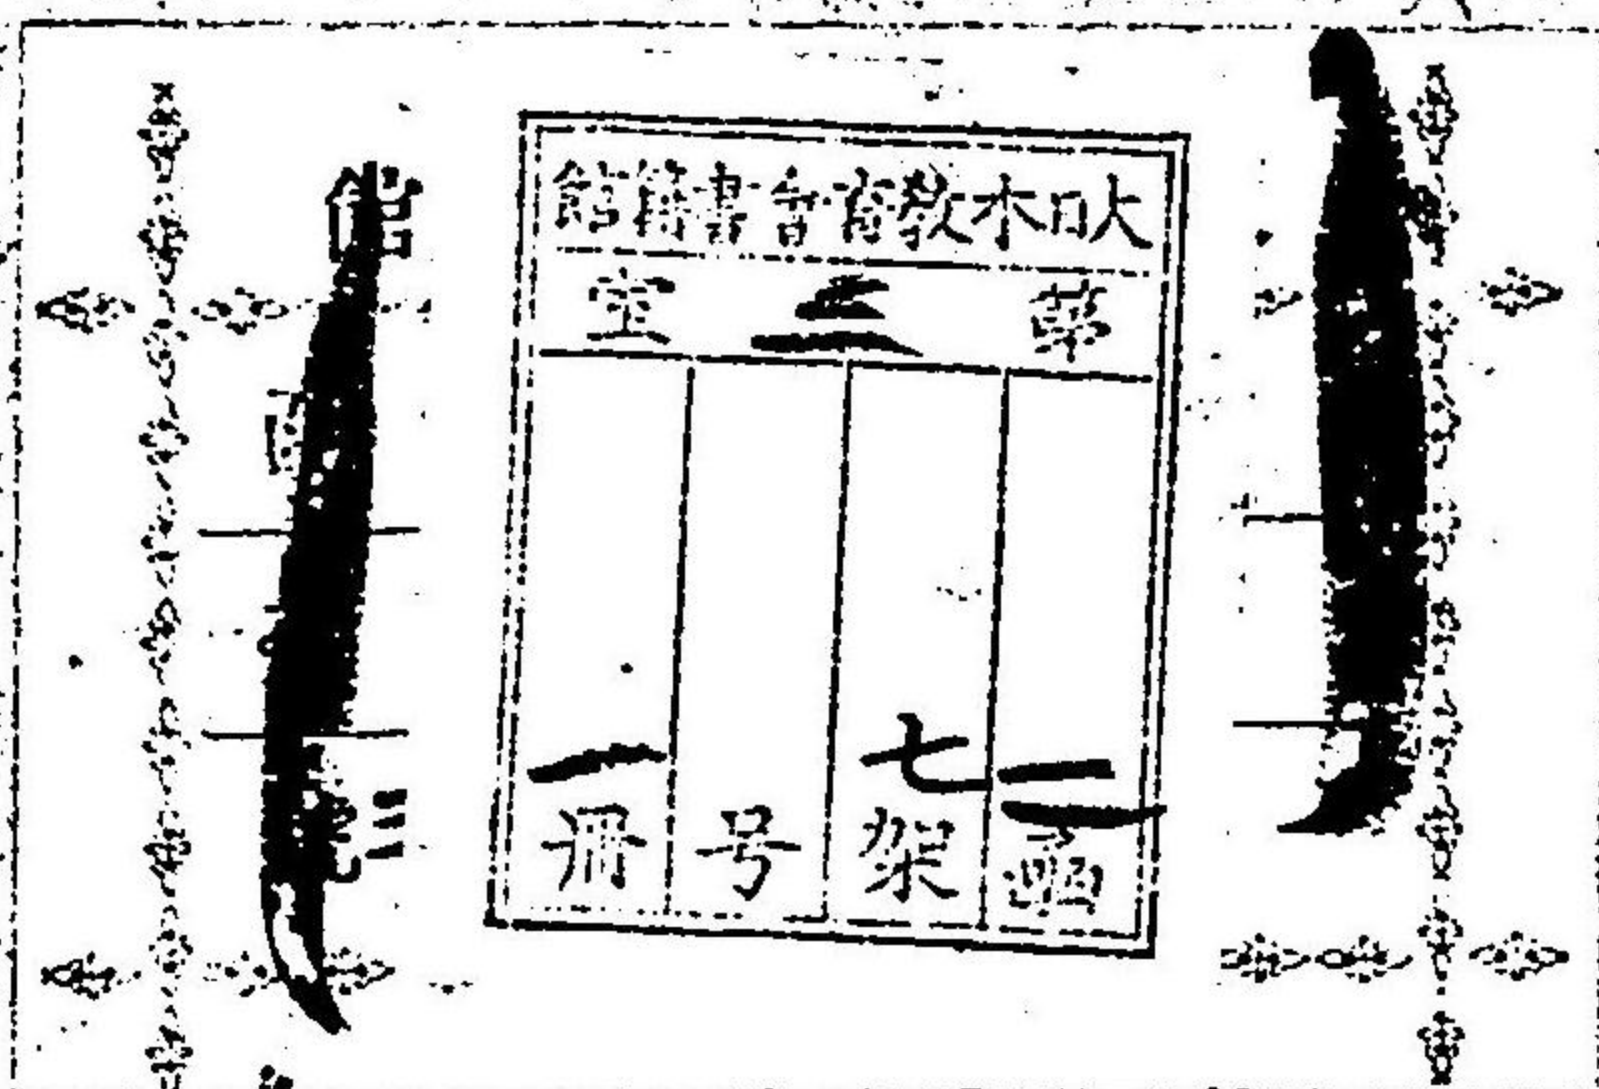 大日本教育會書籍館
第三室
二函
七架
号
一冊
館